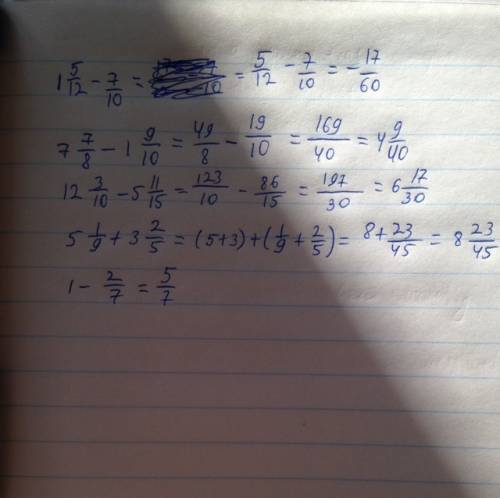 1 5/12 - 7/10 = = 5/12 - 7/10 = - 17/60
7 7/8 - 1 9/10 = 49/8 - 19/10 = 169/40 = 4 9/40
12 3/10 - 5 11/15 = 123/10 - 86/15 = 197/30 = 6 17/30
5 1/9 + 3 2/5 = (5+3) + (1/9 + 2/5) = 8 + 23/45 = 8 23/45
1 - 2/7 = 5/7